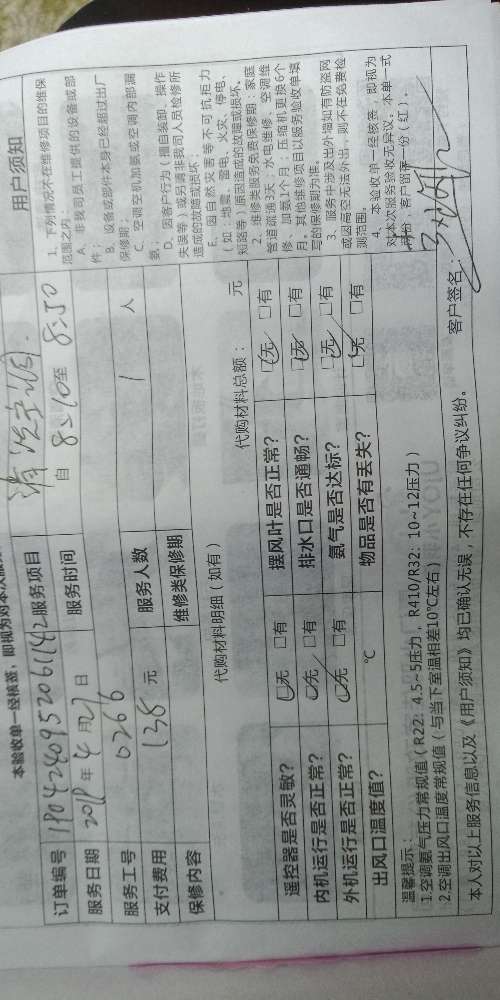 本验收单一经核签，即视为对本次服
订单编号 1904240952061142 服务项目 清洗空调.
服务日期 2019年4月27日 服务时间 自8:10至8:50
服务工号 0266 服务人数 1 人
支付费用 138 元 维修类保修期
保修内容
代购材料明细（如有） 代购材料总额： 元
遥控器是否灵敏？ 无 有 摆风叶是否正常？ 无 有
内机运行是否正常？ 无 有 排水口是否通畅？ 无 有
外机运行是否正常？ 无 有 氨气是否达标？ 无 有
出风口温度值？ ℃ 物品是否有丢失？ 无 有
温馨提示：
1.空调氨气压力常规值（R22：4.5~5压力，R410/R32：10~12压力）
2.空调出风口温度常规值（与当下室温相差10℃左右）
本人对以上服务信息以及《用户须知》均已确认无误，不存在任何争议纠纷。
客户签名：
用户须知
1、下列情况不在维修项目的维保
范围之内：
A、非我司员工提供的设备或部
件；
B、设备或部件本身已经超过出厂
保修期；
C、空调空机加氨或空调内部漏
氨；
D、因客户行为（擅自装卸、操作
失误等）或另请非我司人员检修所
造成的故障或损坏；
E、因自然灾害等不可抗拒力
（如：地震、雷电、火灾、停电、
短路等）原因造成的故障或损坏。
2、维修类服务免费保修期：家庭
管道疏通3天；水电维修、空调维
修、加氨1个月；压缩机更换6个
月。其他维修项目以服务验收单填
写的保修期为准。
3、服务中涉及出外墙如有防盗网
或因高空无法外出，则不在免费检
测范围。
4、本验收单一经核签，即视为
对本次服务验收无异议。本单一式
两份，客户留存一份（红）。